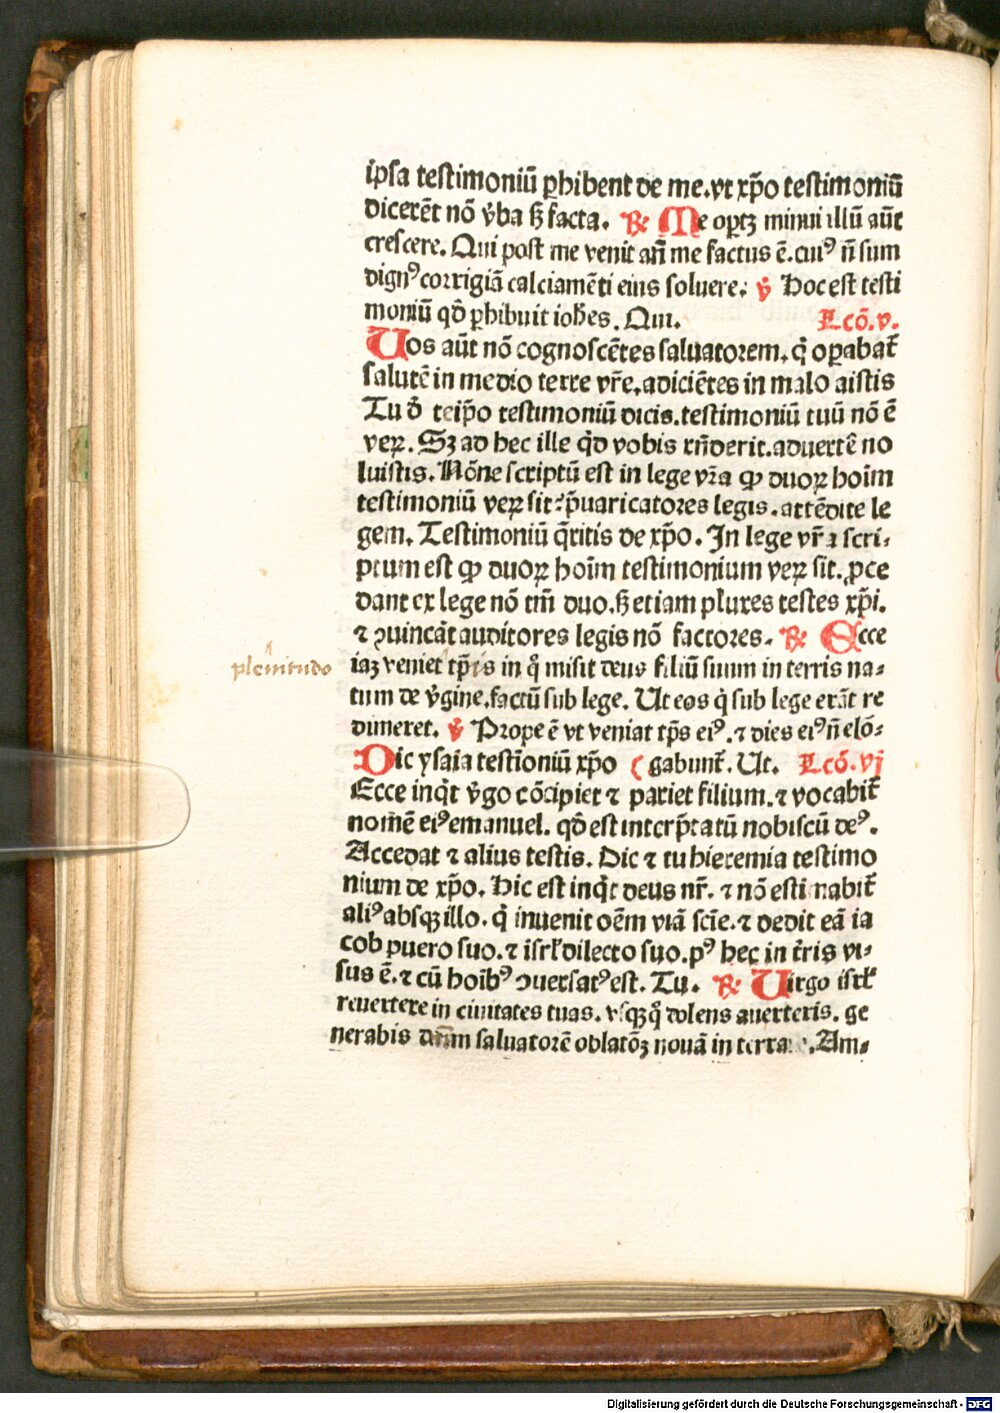 ipsa testimoniū ꝑhibent de me.vt xp̄o testimoniū
dicerēt nō v̄ba sꝫ facta. ℟ Me oꝑtꝫ minui illū aūt
crescere. Qui post me venit an̄ me factus ē.cuiꝰ n̄ sum
dignꝰ corrigiā calciamēti eius soluere. ℣ Hoc est testi
moniū qd̄ ꝑhibuit ioh̄es. Qui. Lcō.v.
Uos aūt nō cognoscētes saluatorem, q̇ oꝑabat̄
salutē in medio terre vr̄e, adiciētes in malo aistis
Tu d̄ teip̄o testimoniū dicis.testimoniū tuū nō ē
veꝝ. Sꝫ ad hec ille qd̄ vobis rn̄derit.aduertē no
luistis. Nōne scriptū est in lege vr̄a ꝙ duoꝝ hoīm
testimoniū veꝝ sit? p̄uaricatores legis.attēdite le
gem. Testimoniū q̄ritis de xp̄o. In lege vr̄a scri-
ptum est ꝙ duoꝝ hoīm testimonium veꝝ sit. ꝓce
dant ex lege nō tm̄ duo.sꝫ etiam plures testes xp̄i.
⁊ ꝯuincāt auditores legis nō factores. ℟ Ecce
iaꝫ veniet tp̄is in q̊ misit deus filiū suum in terris na-
plenitudo
tum de v̄gine.factū sub lege. Ut eos q̇ sub lege erāt re
dimeret. ℣ Prope ē vt veniat tp̄s eiꝰ.⁊ dies eiꝰ n̄ elō-
Dic ysaia testīoniū xp̄o ( gabunt̄. Ut. Lcō.vj
Ecce inq̇t v̄go cōcipiet ⁊ pariet filium.⁊ vocabit̄
nomē eiꝰ emanuel. qd̄ est interp̄tatū nobiscū deꝰ.
Accedat ⁊ alius testis. Dic ⁊ tu hieremia testimo
nium de xp̄o. Hic est inq̇t deus nr̄. ⁊ nō estimabit̄
aliꝰ absqꝫ illo. q̇ inuenit oēm viā scīe.⁊ dedit eā ia
cob puero suo.⁊ isrl̄ dilecto suo.pꝰ hec in t̄ris vi-
sus ē.⁊ cū hoībꝰ ꝯuersatꝰ est. Tu. ℟ Uirgo isrl̄
reuertere in ciuitates tuas. vsqꝫ q̊ dolens auerteris. ge
nerabis dn̄m saluatorē oblatōꝫ nouā in terra. Am-
Digitalisierung gefördert durch die Deutsche Forschungsgemeinschaft - DFG